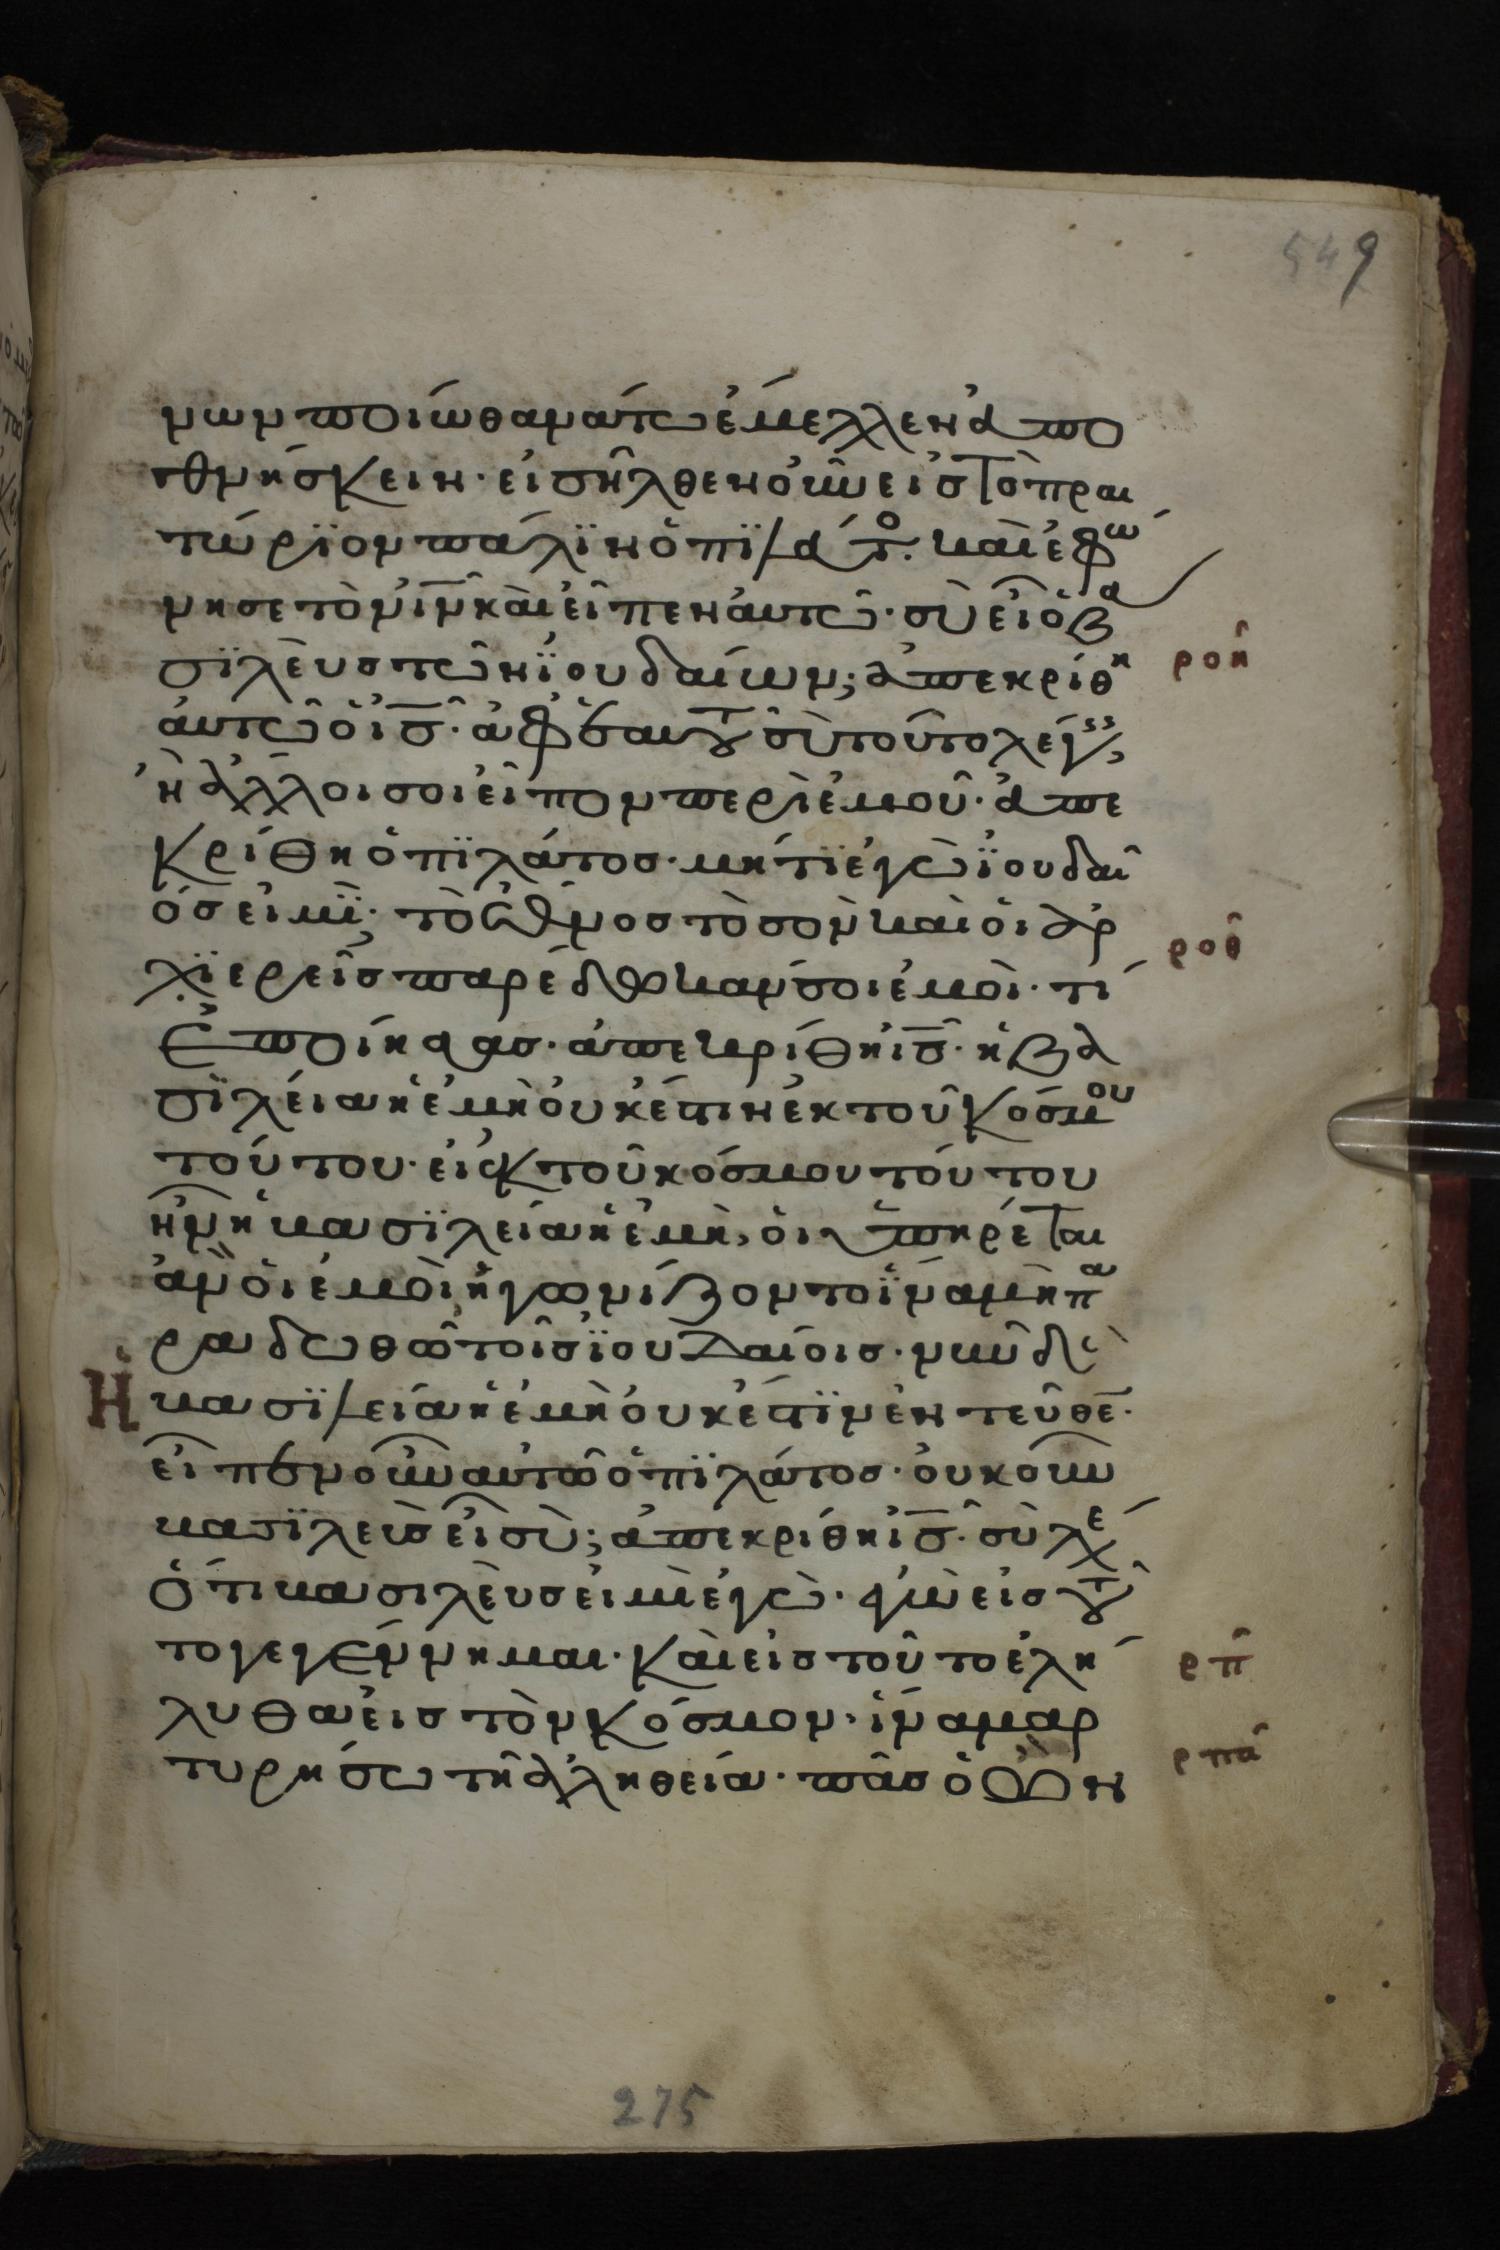 549
νων ποίω θανάτω έμελλεν ἀπο
θνήσκειν· εἰσῆλθεν οὖν εἰς τὸ πραι
τώρϊον πάλϊν ὁ πϊλάτο. καὶ ἐφώ
νησε τὸν ἰν̅ καὶ εἶπεν ἀυτῶ· σὺ εἶ ὁ βα
σϊλὲυς τῶν ϊουδαίων; ἀπεκρίθη
ἀυτῶ ὁ ἰς̅· ἀφ ἑαυτοῦ σὺ τοῦτο λέγεις,
ἢ ἄλλοι σοι εἶπον περὶ ἐμοῦ· ἀπε
κρίθη ὁ πϊλάτος· μήτϊ ἐγὼ ϊουδαῖ
ός εἰμϊ; τὸ ἔθνος τὸ σὸν καὶ ὁι ἀρ
χϊερεῖς παρέδωκάν σοι ἐμοὶ· τί
ἐποίησας· ἀπεκρίθη ἰς̅· ἡ βα
σϊλεία ἡ ἐμὴ ὀυκ έστιν ἐκ τοῦ κόσμου
τούτου· εἰ ἐκ τοῦ κόσμου τόυτου
ἦν ἡ βασϊλεία ἡ ἐμὴ, ὁι ὑπηρέται
ἂν ὁι ἐμοὶ ἠγωνίζοντο ϊνα μὴ πα
ραδωθῶ τοῖς ϊουδαίοις· νῦν δὲ
Ἡ βασϊλεία ἡ ἐμὴ ὀυκ έστϊν ἐντεῦθε̅·
εἶπεν οὖν αυτῶ ὁ πϊλάτος· ὀυκοῦν
βασϊλεὺς εἶ σὺ; ἀπεκρίθη ἰς̅· σὺ λέγ
ὅτι βασιλὲυς εἰμὶ ἐγὼ· ἐγὼ εἰς τοῦ
το γεγέννημαι· καὶ εἰς τοῦτο ἐλή
λυθα εἰς τὸν κόσμον· ἵνα μαρ
τυρήσω τῆ ἀληθεία· πᾶς ὁ ὢν
ροη
ροθ
ρπ
ρπα
275